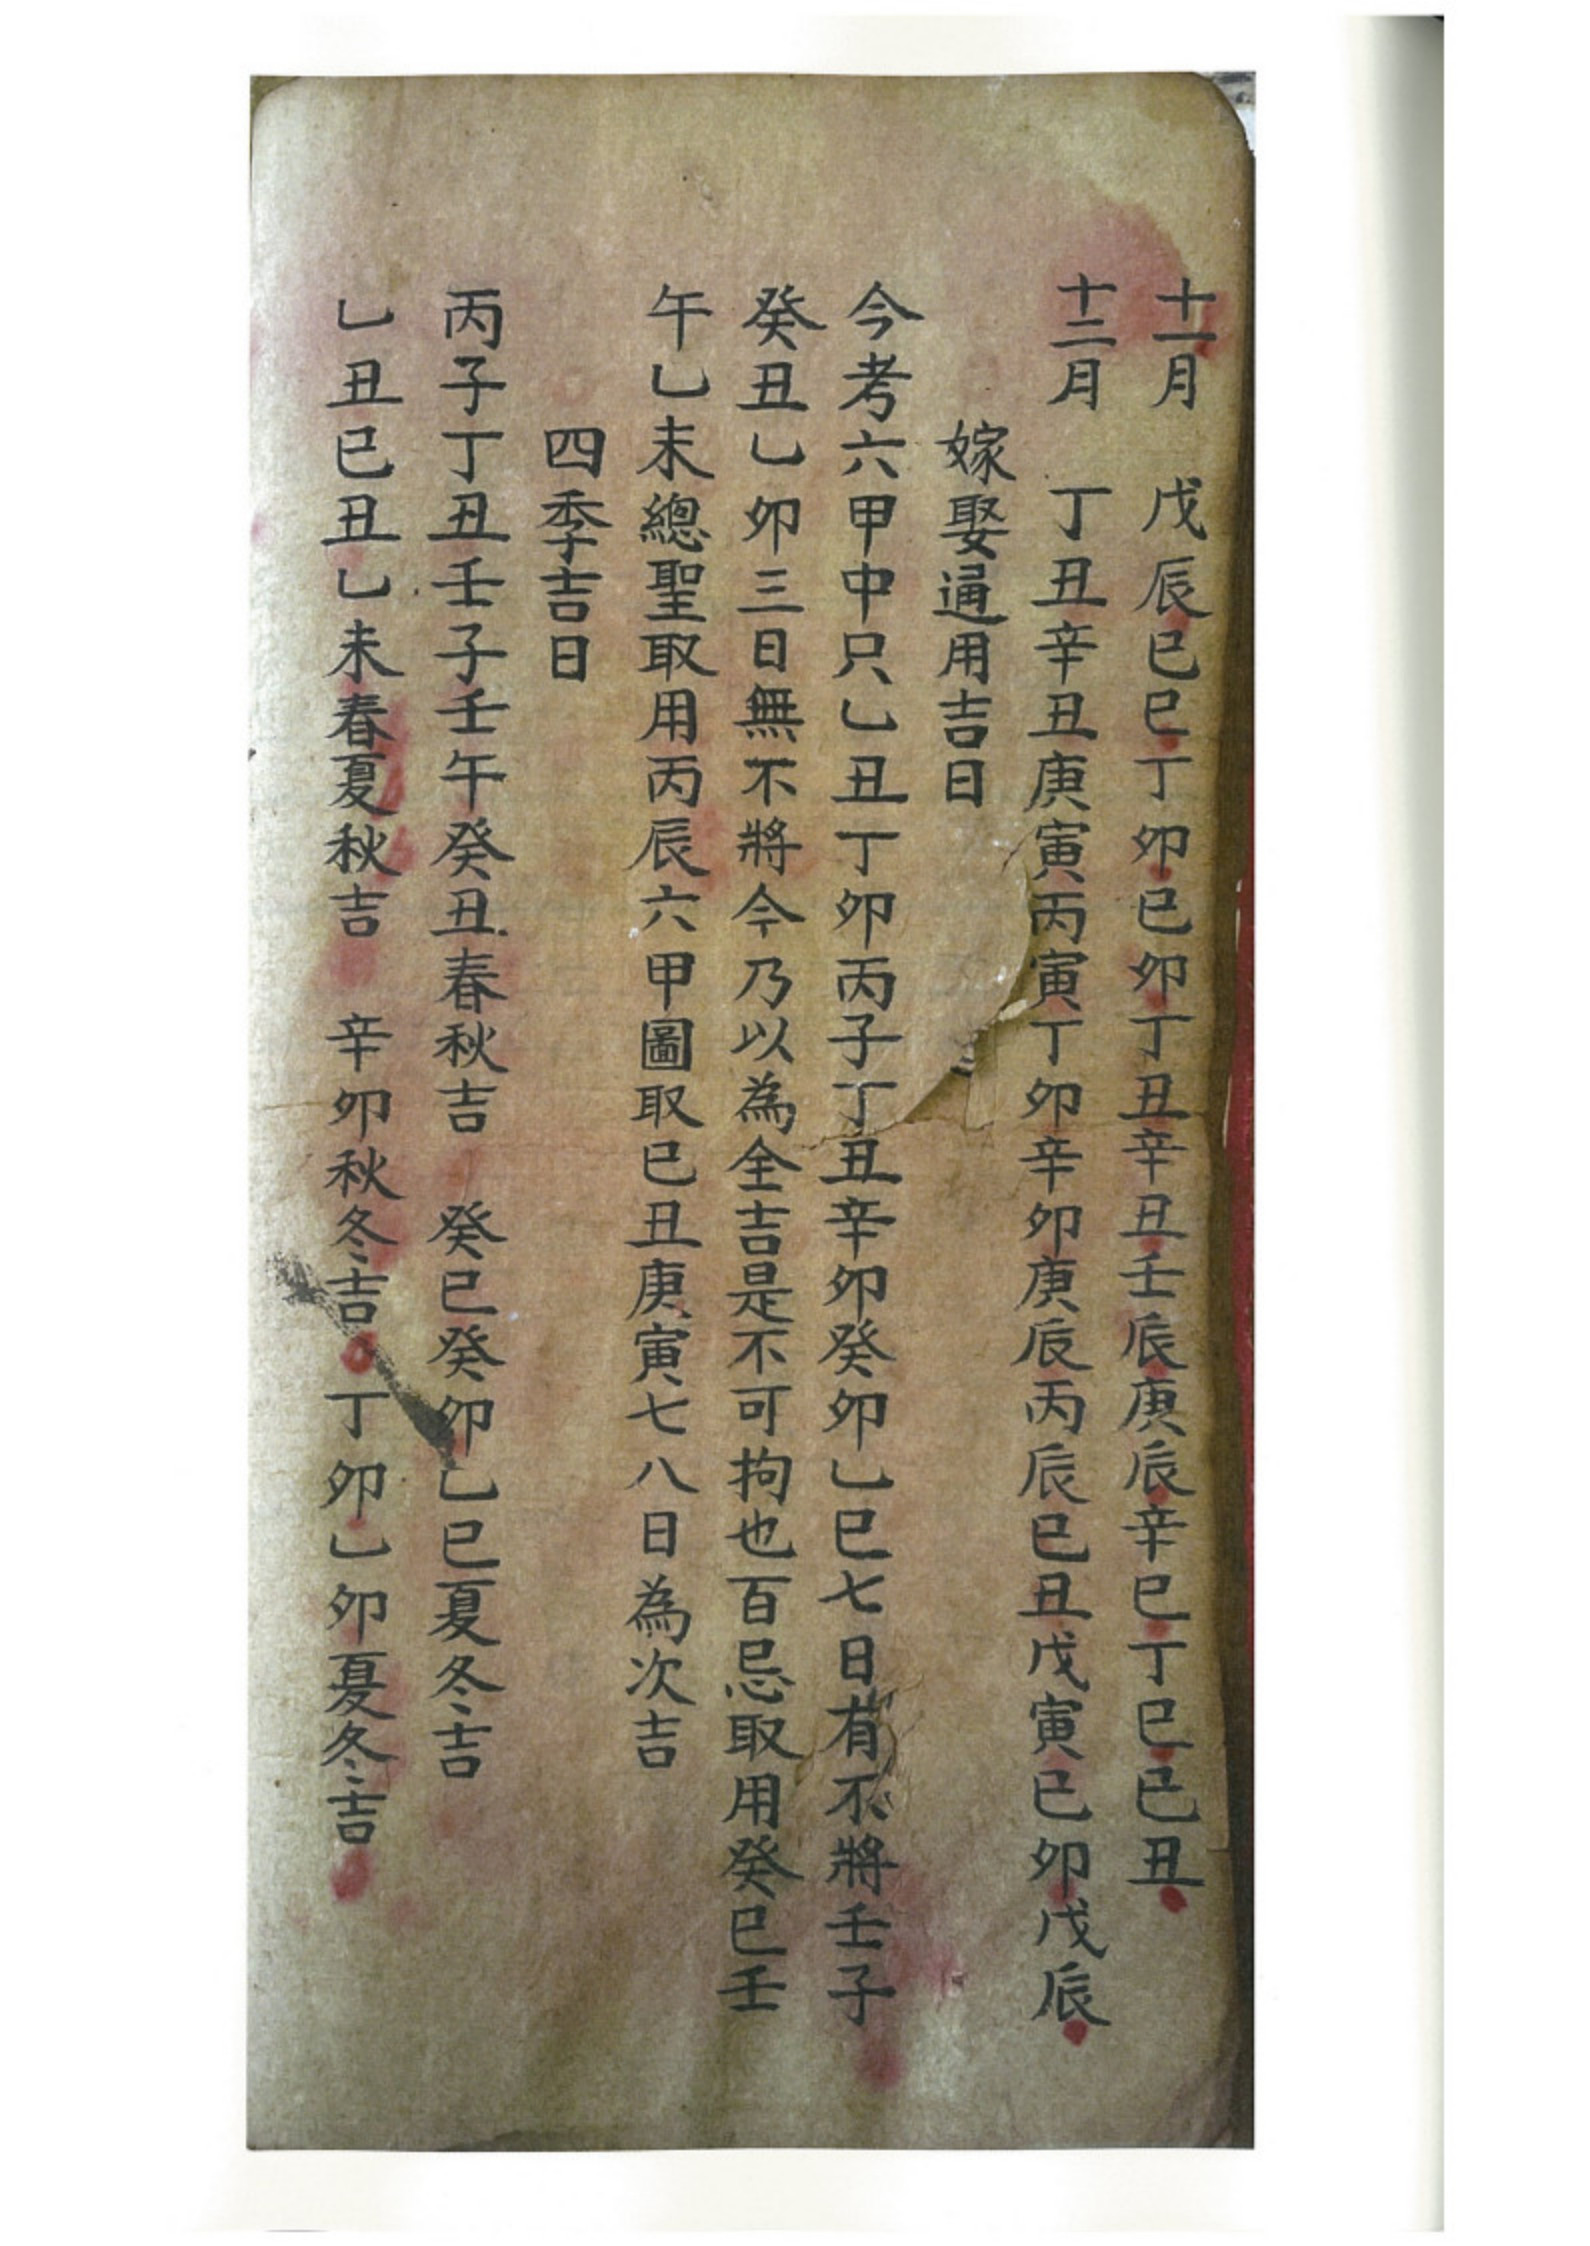 十一月 戊辰巳巳丁卯巳卯丁丑辛丑壬辰庚辰辛巳丁巳巳丑
十二月 丁丑辛丑庚寅丙寅丁卯辛卯庚辰丙辰巳丑戊寅巳卯戊辰
嫁娶通用吉日
今考六甲中只乙丑丁卯丙子丁丑辛卯癸卯乙巳七日有不將壬子
癸丑乙卯三日無不將今乃以為全吉是不可拘也百忌取用癸巳壬
午乙未總聖取用丙辰六甲圖取巳丑庚寅七八日為次吉
四季吉日
丙子丁丑壬子壬午癸丑春秋吉 癸巳癸卯乙巳夏冬吉
乙丑巳丑乙未春夏秋吉 辛卯秋冬吉 丁卯乙卯夏冬吉